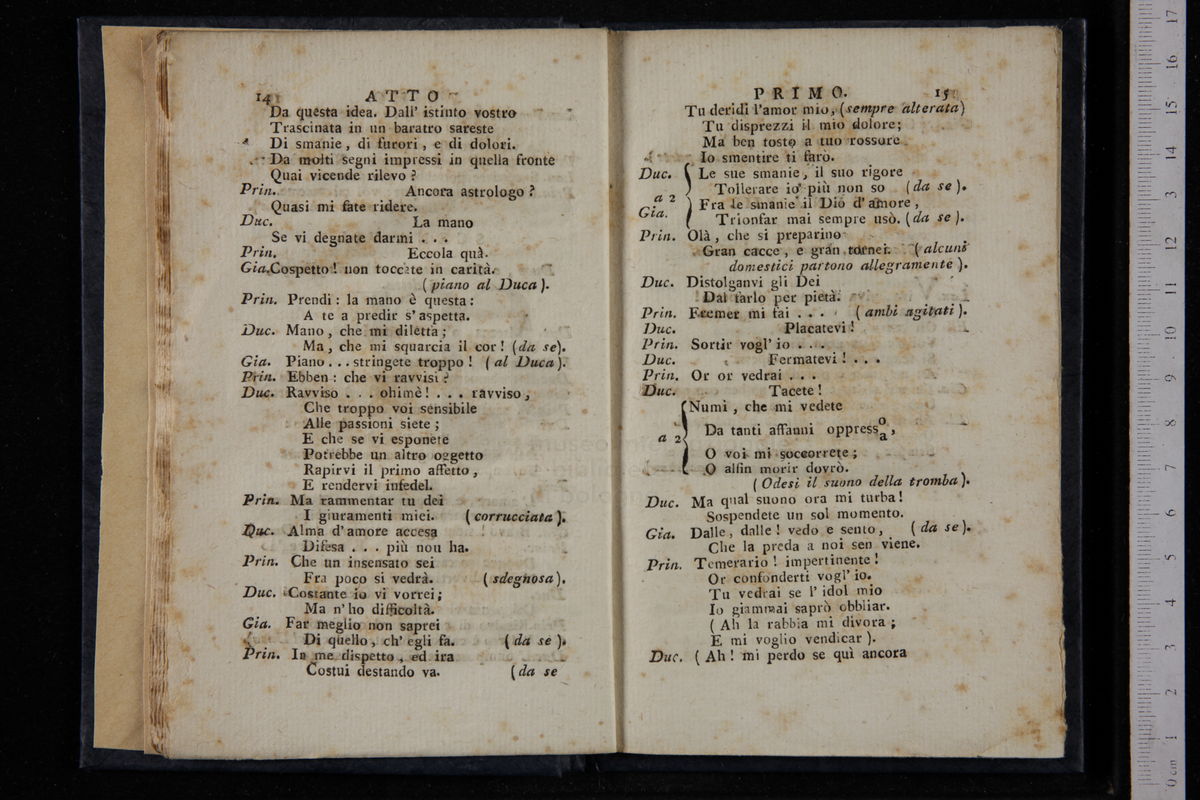 14 ATTO
Da questa idea. Dall' istinto vostro
Trascinata in un baratro sareste
Di smanie, di furori, e di dolori.
Da molti segni impressi in quella fronte
Quai vicende rilevo?
Prin. Ancora astrologo?
Quasi mi fate ridere.
Duc. La mano
Se vi degnate darmi . . .
Prin. Eccola quà.
Gia. Cospetto! non toccate in carità.
(piano al Duca).
Prin. Prendi: la mano è questa:
A te a predir s'aspetta.
Duc. Mano, che mi diletta;
Ma, che mi squarcia il cor! (da se).
Gia. Piano . . . stringete troppo! (al Duca).
Prin. Ebben: che vi ravvisi?
Duc. Ravviso . . . ohimè! . . . ravviso,
Che troppo voi sensibile
Alle passioni siete;
E che se vi esponete
Potrebbe un altro oggetto
Rapirvi il primo affetto,
E rendervi infedel.
Prin. Ma rammentar tu dei
I giuramenti miei. (corrucciata).
Duc. Alma d'amore accesa
Difesa . . . più non ha.
Prin. Che un insensato sei
Fra poco si vedrà. (sdegnosa).
Duc. Costante io vi vorrei;
Ma n'ho difficoltà.
Gia. Far meglio non saprei
Di quello, ch'egli fa. (da se).
Prin. In me dispetto, ed ira
Costui destando va. (da se
PRIMO. 15
Tu deridi l'amor mio, (sempre alterata)
Tu disprezzi il mio dolore;
Ma ben tosto a tuo rossore
Io smentire ti farò.
Duc. Le sue smanie, il suo rigore
Tollerare io più non so (da se).
a 2
Gia. Fra le smanie il Dio d'amore,
Trionfar mai sempre usò. (da se).
Prin. Olà, che si preparino
Gran cacce, e gran tornei. (alcuni
domestici partono allegramente).
Duc. Distolganvi gli Dei
Dal farlo per pietà.
Prin. Fremer mi fai . . . (ambi agitati).
Duc. Placatevi!
Prin. Sortir vogl' io . . .
Duc. Fermatevi! . . .
Prin. Or or vedrai . . .
Duc. Tacete!
Numi, che mi vedete
a 2 Da tanti affanni oppress o/a,
O voi mi soccorrete;
O alfin morir dovrò.
(Odesi il suono della tromba).
Duc. Ma qual suono ora mi turba!
Sospendete un sol momento.
Gia. Dalle, dalle! vedo e sento, (da se).
Che la preda a noi sen viene.
Prin. Temerario! impertinente!
Or confonderti vogl' io.
Tu vedrai se l' idol mio
Io giammai saprò obbliar.
(Ah la rabbia mi divora;
E mi voglio vendicar).
Duc. (Ah! mi perdo se quì ancora
0 cm 1 2 3 4 5 6 7 8 9 10 11 12 13 14 15 16 17